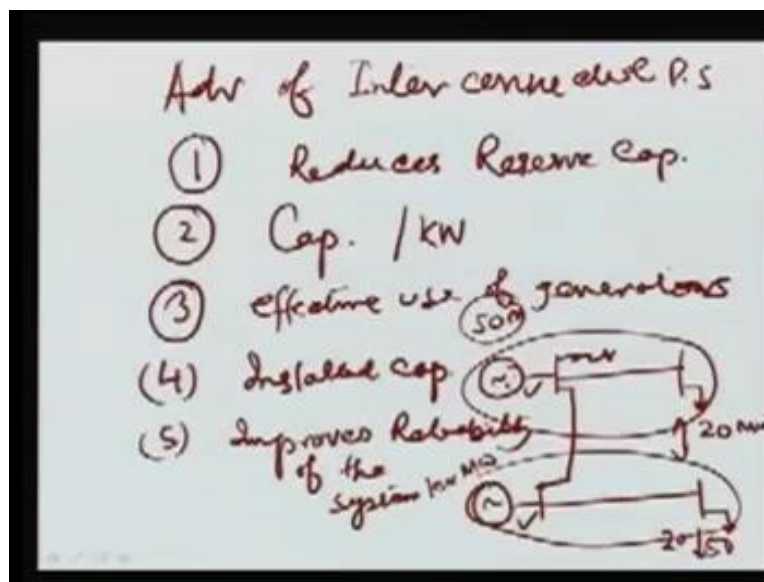 Adv of Interconnective P.S
1 Reduces Reserve Cap.
2 Cap. / KW
3 effective use of generations
50
(4) Installed cap
(5) Improves Reliability
of the
system
20
20 50